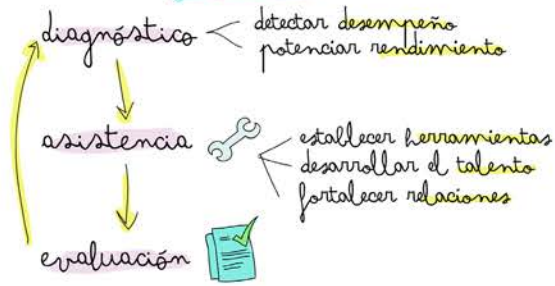 diagnóstico
detectar desempeño
potenciar rendimiento
asistencia
establecer herramientas
desarrollar el talento
fortalecer relaciones
evaluación